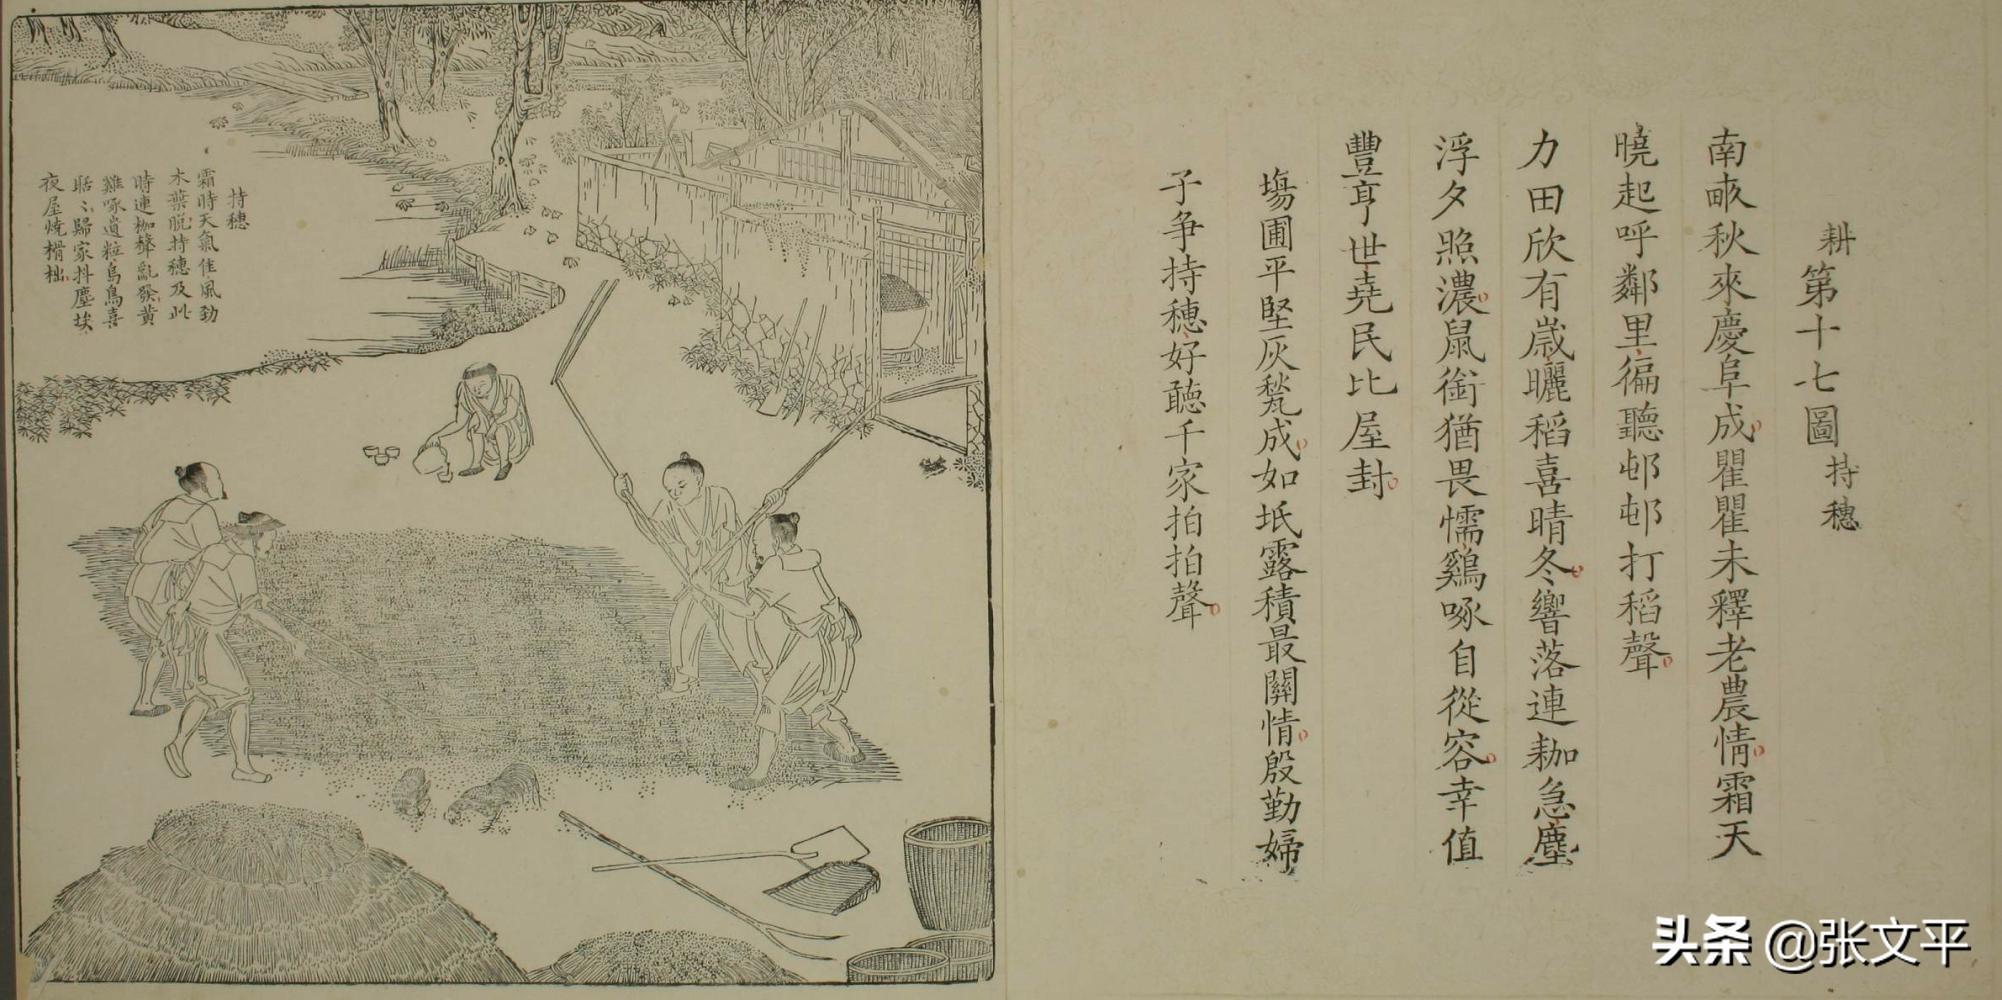 耕第十七圖持穗
南畞秋來慶阜成瞿瞿未釋老農情霜天
曉起呼鄰里徧聽邨邨打稻聲
力田欣有歲曬稻喜晴冬響落連耞急塵
浮夕照濃鼠銜猶畏懦鷄啄自從容幸值
豐亨世堯民比屋封
塲圃平堅灰甃成如坻露積最關情殷勤婦
子争持穗好聽千家拍拍聲
持穗
霜時天氣佳風勁
木葉脫持穗及此
時連枷聲亂發黄
雞啄遺粒烏鳥喜
聒〻歸家抖塵埃
夜屋燒榾柮
头条 @张文平